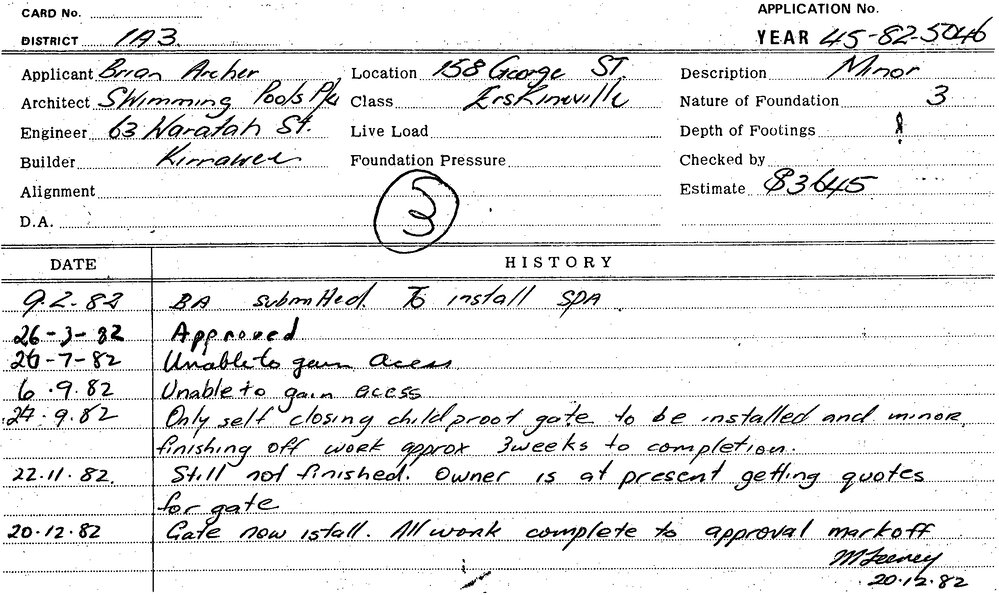 CARD No.
APPLICATION No.
DISTRICT 1A3.
YEAR 45-82-5046
Applicant Brian Archer Location 158 George ST. Description Minor
Architect Swimming Pools P/L Class Erskineville Nature of Foundation 3
Engineer 63 Waratah St. Live Load Depth of Footings
Builder Kirrawee Foundation Pressure Checked by
Alignment Estimate $3645
D.A. 3
DATE HISTORY
9.2.82 BA submitted. To install SPA
26-3-82 Approved
26-7-82 Unable to gain acess
6.9.82 Unable to gain acess
27.9.82 Only self closing childproof gate to be installed and minor
finishing off work approx 3weeks to completion.
22.11.82. Still not finished. Owner is at present getting quotes
for gate
20.12.82 Gate now istall. All work complete to approval markoff
MFeeney
20.12.82